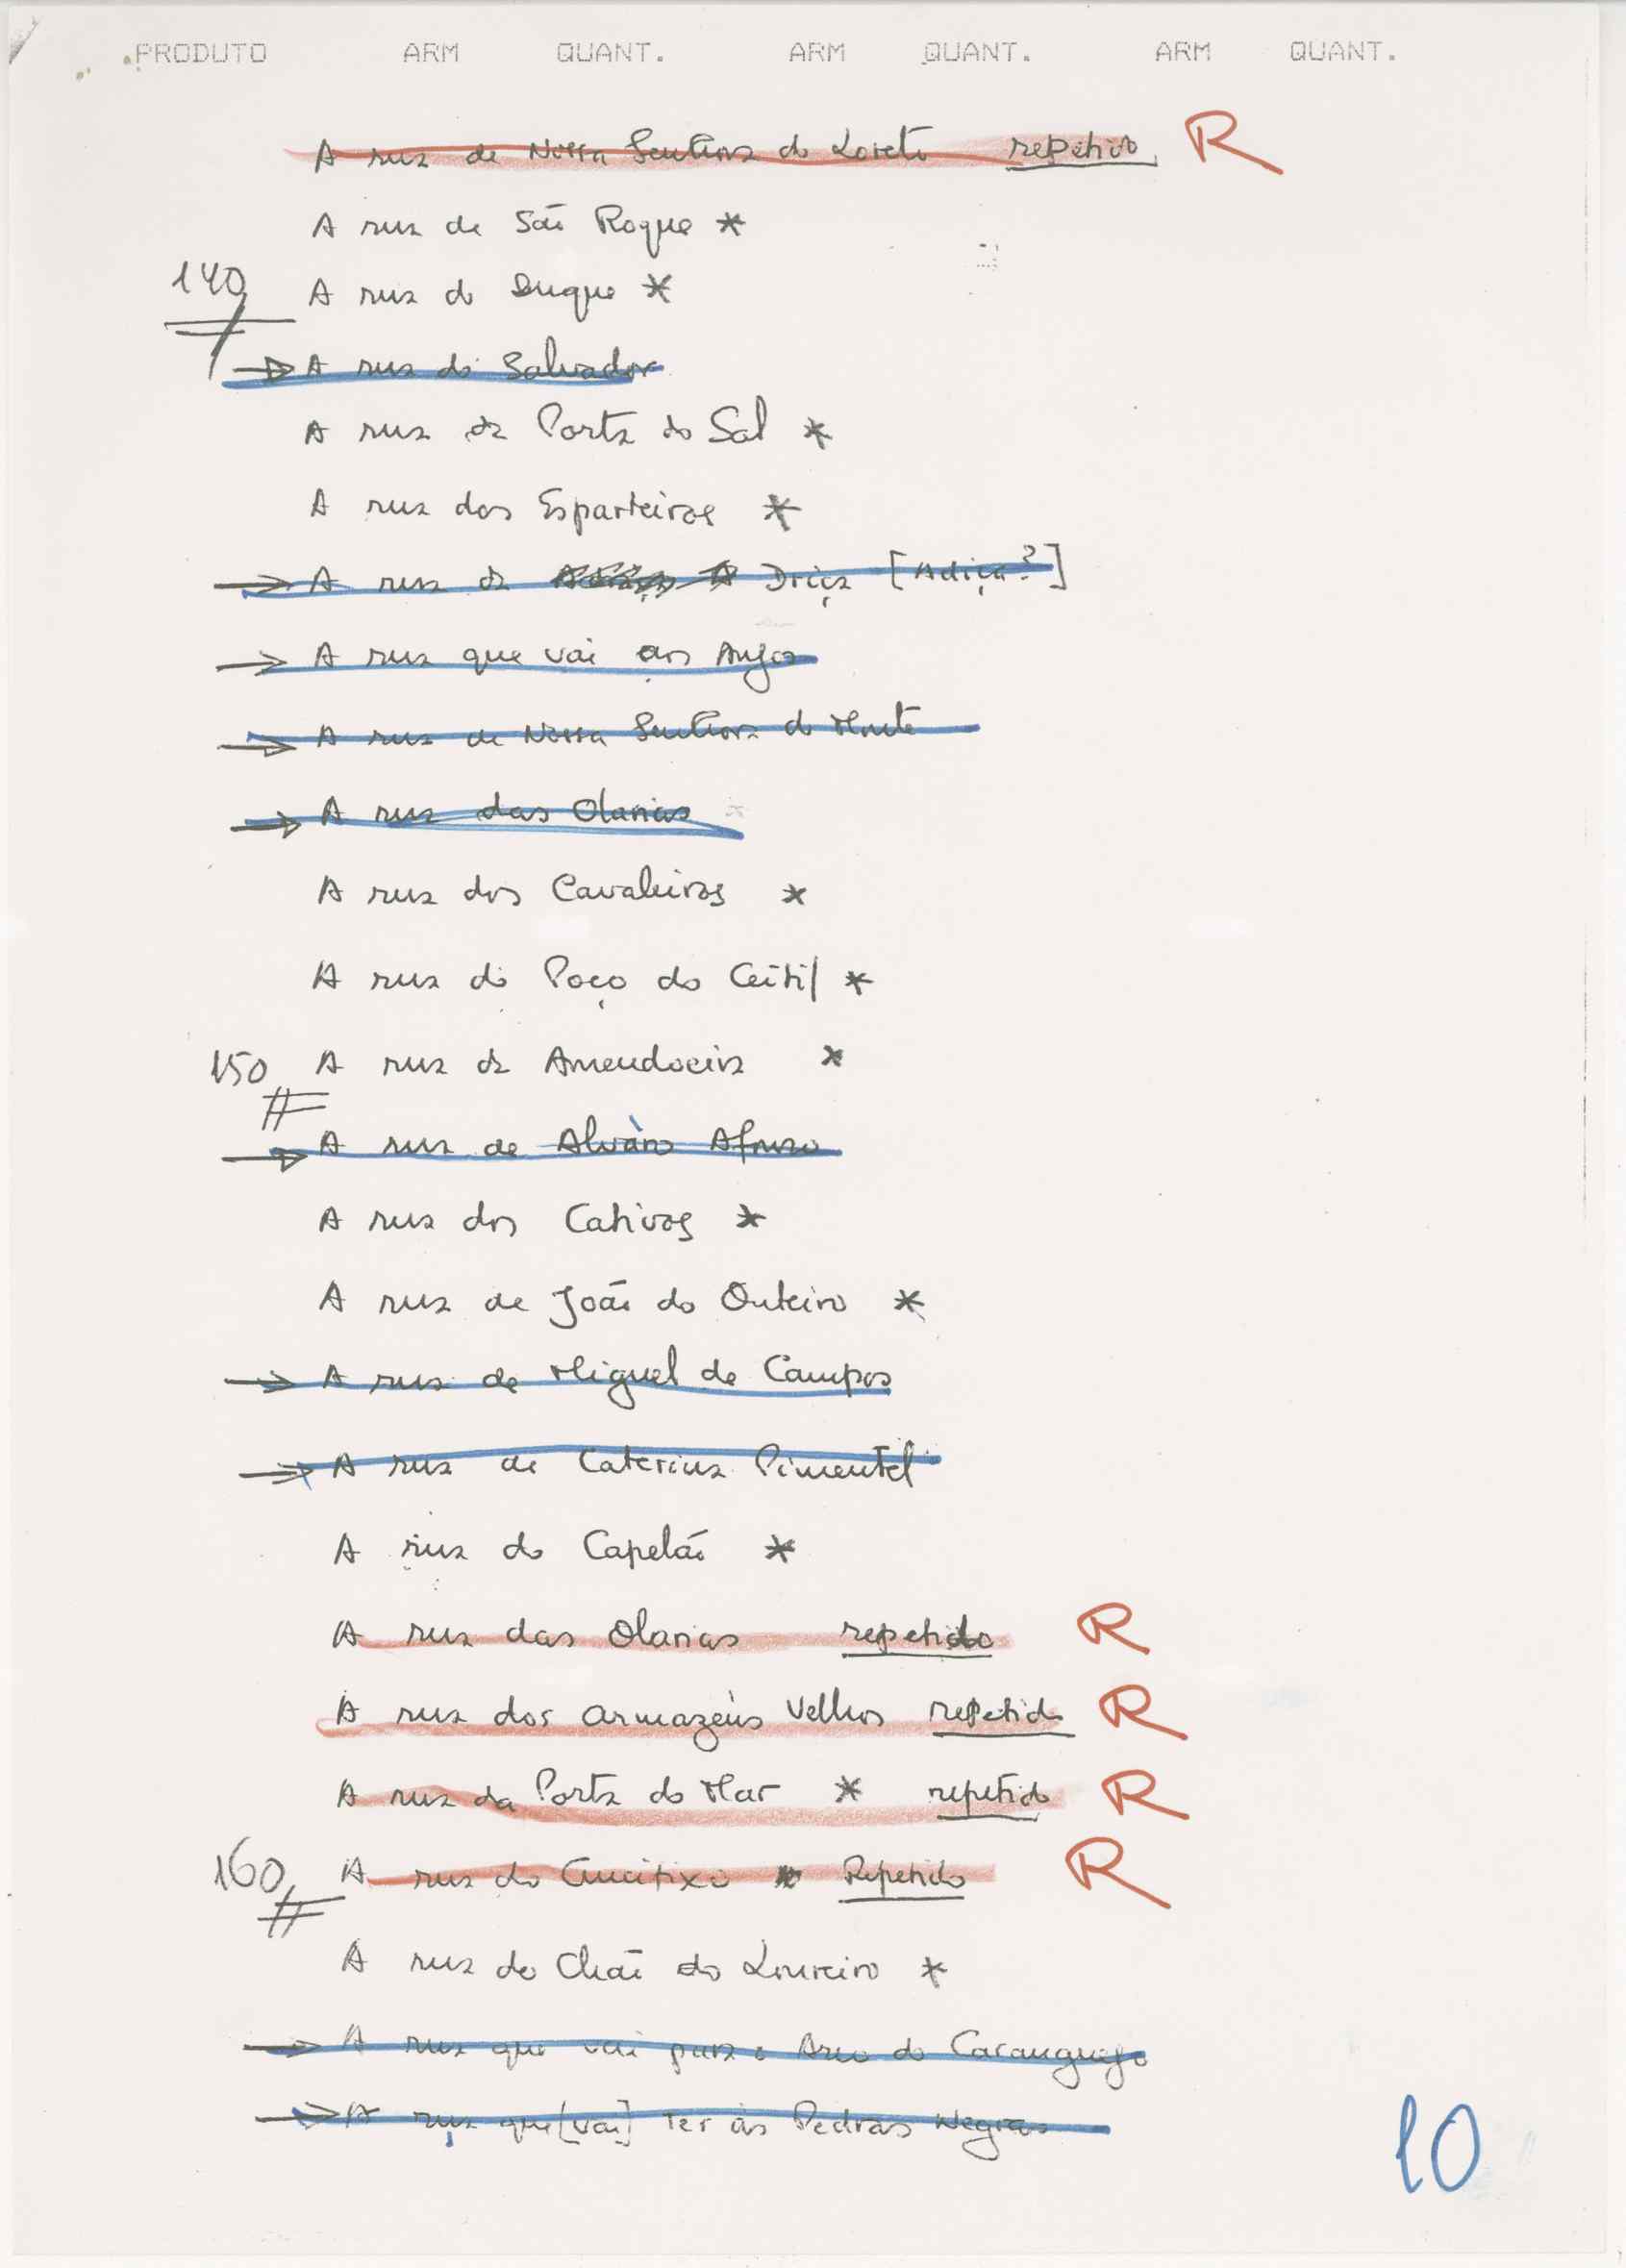 PRODUTO ARM QUANT. ARM QUANT. ARM QUANT.
A rua de Nossa Senhora do Loreto repetido R
A rua de São Roque *
140 A rua do Duque *
→ A rua do Salvador
A rua da Porta do Sal *
A rua dos Esparteiros *
→ A rua da Driça [Adiça?]
→ A rua que vai aos Anjos
→ A rua de Nossa Senhora do Monte
→ A rua das Olarias
A rua dos Cavaleiros *
A rua do Poço do Ceitil *
150 A rua da Amendoeira *
→ A rua de Alvaro Afonso
A rua dos Cativos *
A rua de João do Outeiro *
→ A rua de Miguel de Campos
→ A rua de Caterina Pimentel
A rua do Capelão *
A rua das Olarias repetido R
A rua dos Armazéns Velhos repetido R
A rua da Porta do Mar * repetido R
160 A rua do Crucifixo * Repetido R
A rua do Chão do Loureiro *
→ A rua que vai para o Arco do Caranguejo
→ A rua que [vai] ter às Pedras Negras
10